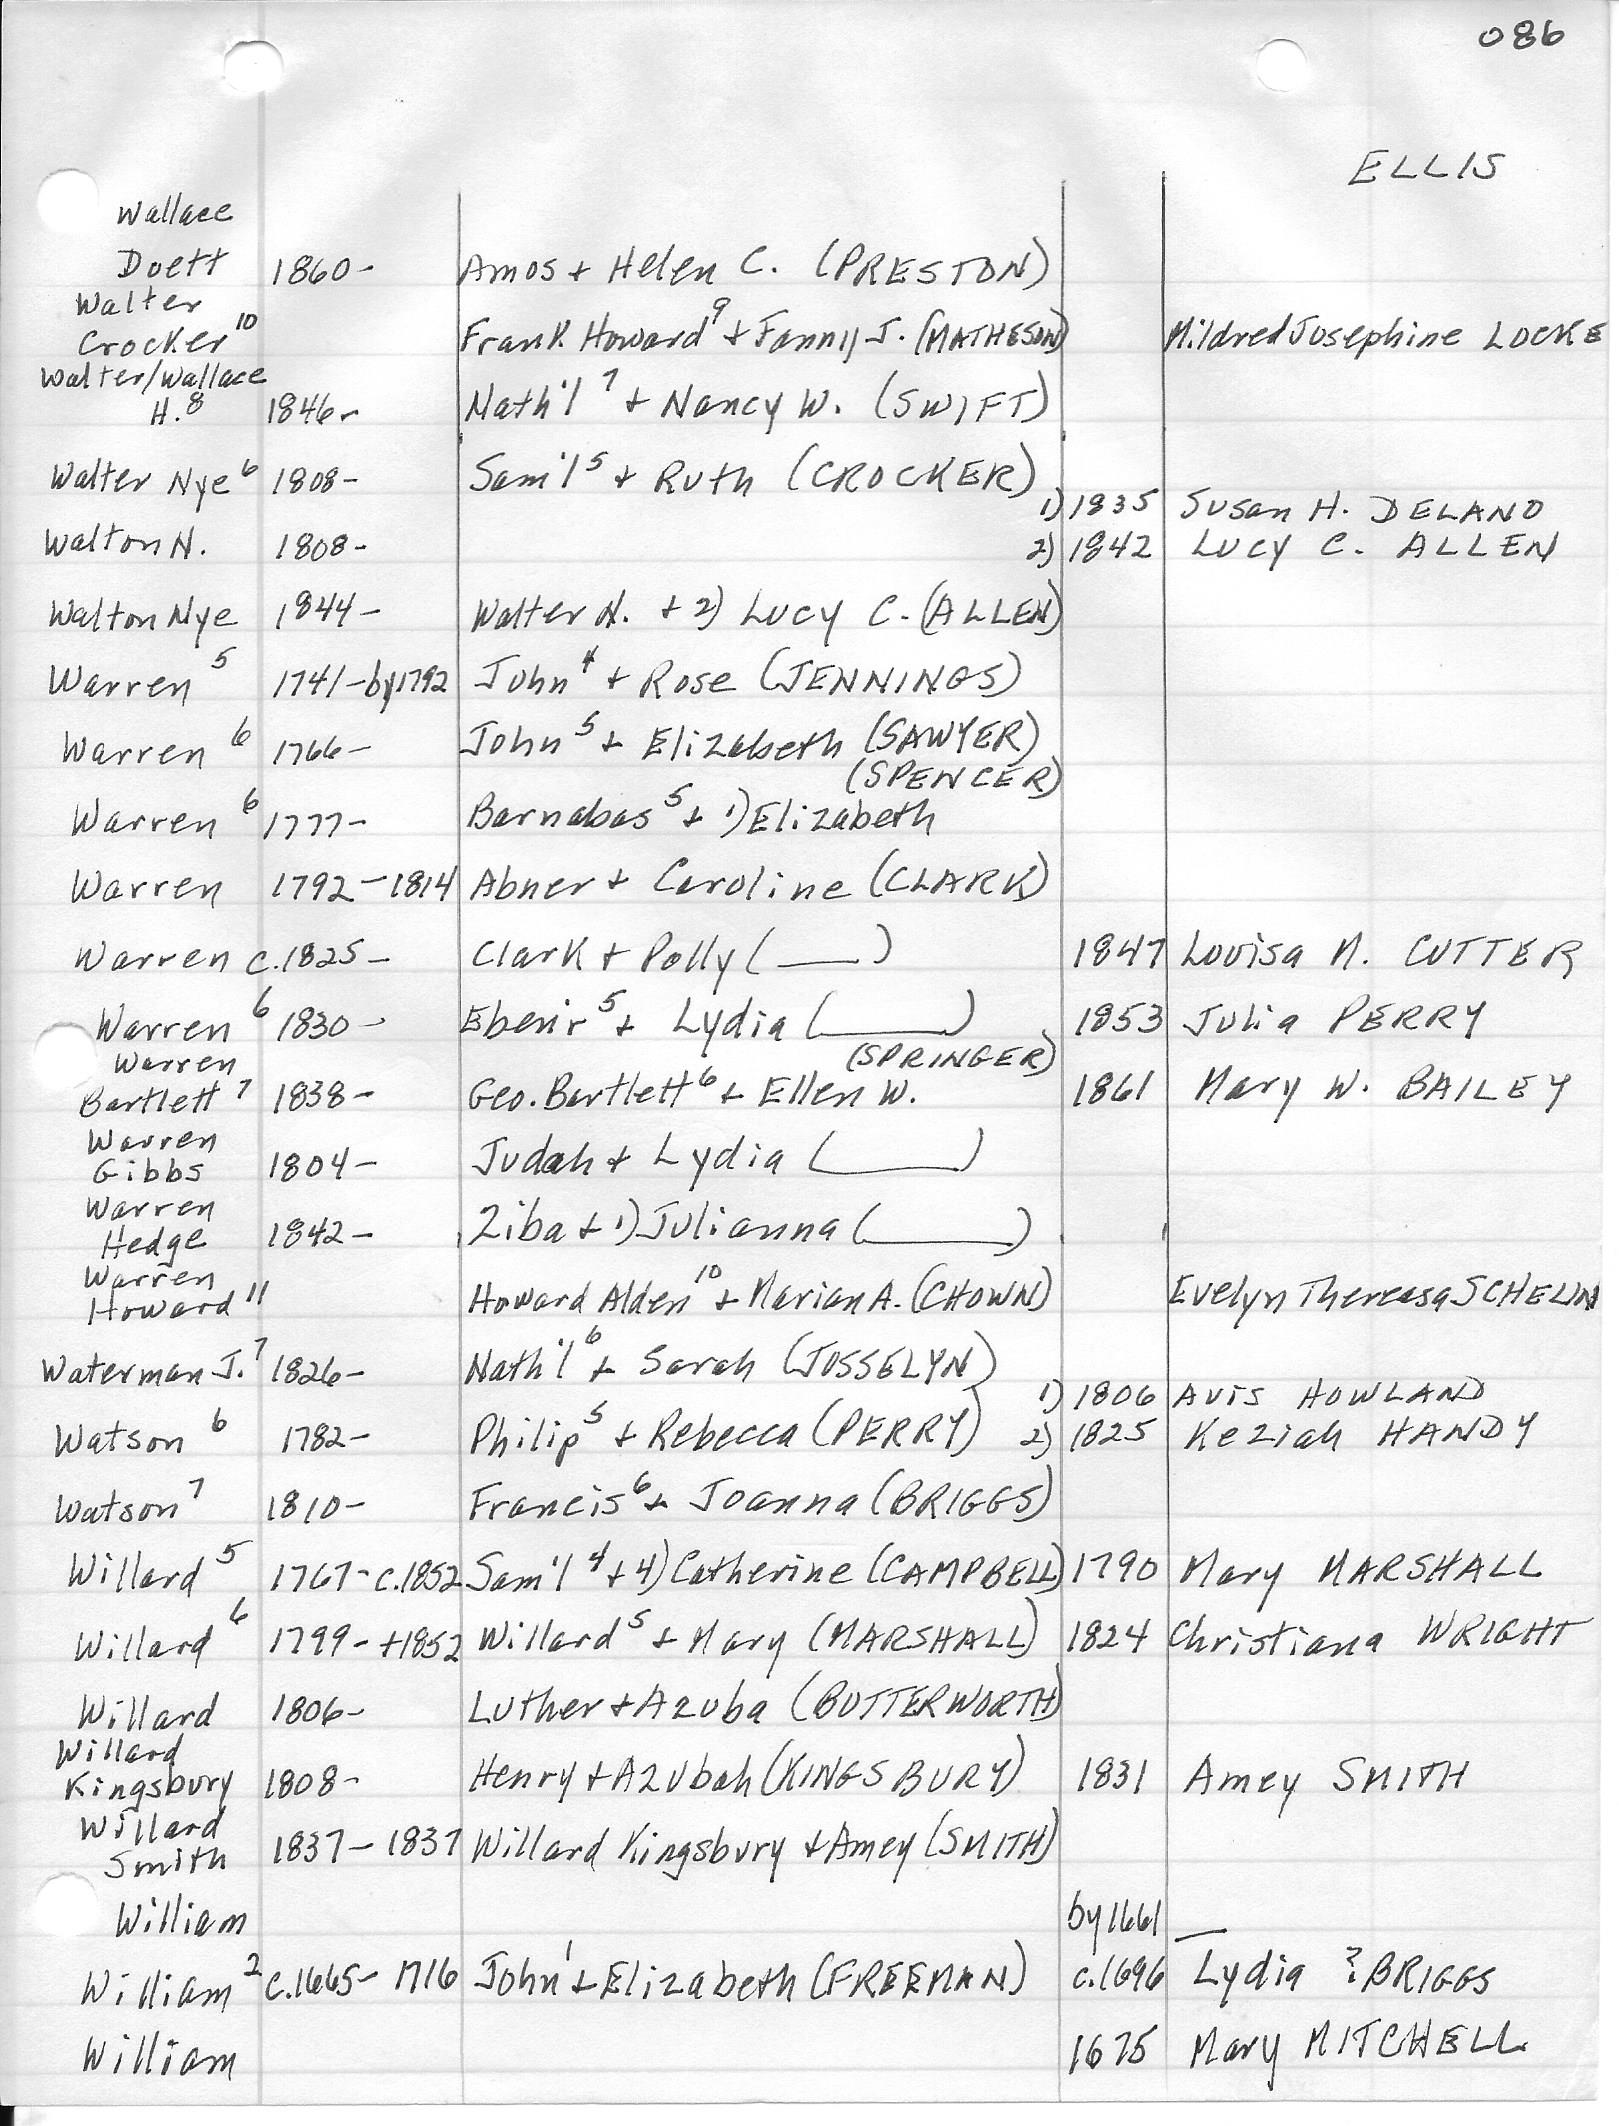 086
ELLIS
Wallace
Doett 1860- Amos + Helen C. (PRESTON)
Walter
Crocker 10 Frank Howard 9 + Fanny J. (MATHESON) Mildred Josephine LOCKE
Walter/Wallace
H. 8 1846- Nath'l 7 + Nancy W. (SWIFT)
Walter Nye 6 1808- Sam'l 5 + Ruth (CROCKER)
1) 1835 Susan H. DELANO
Walton N. 1808- 2) 1842 Lucy C. ALLEN
Walton Nye 1844- Walter N. + 2) Lucy C. (ALLEN)
Warren 5 1741-by1792 John 4 + Rose (JENNINGS)
Warren 6 1766- John 5 + Elizabeth (SAWYER)
(SPENCER)
Warren 6 1777- Barnabas 5 + 1) Elizabeth
Warren 1792-1814 Abner + Caroline (CLARK)
Warren c.1825- Clark + Polly (___) 1847 Louisa M. CUTTER
Warren 6 1830- Eben'r 5 + Lydia (___) 1853 Julia PERRY
Warren (SPRINGER)
Bartlett 7 1838- Geo. Bartlett 6 + Ellen W. 1861 Mary W. BAILEY
Warren
Gibbs 1804- Judah + Lydia (___)
Warren
Hedge 1842- Ziba + 1) Julianna (___)
Warren
Howard 11 Howard Alden 10 + Marian A. (CHOWN) Evelyn Thereasa SCHELIN
Waterman J. 7 1826- Nath'l 6 + Sarah (JOSSELYN)
1) 1806 Avis HOWLAND
Watson 6 1782- Philip 5 + Rebecca (PERRY) 2) 1825 Keziah HANDY
Watson 7 1810- Francis 6 + Joanna (BRIGGS)
Willard 5 1767-c.1852 Sam'l 4 + 4) Catherine (CAMPBELL) 1790 Mary MARSHALL
Willard 6 1799-+1852 Willard 5 + Mary (MARSHALL) 1824 Christiana WRIGHT
Willard 1806- Luther + Azuba (BUTTERWORTH)
Willard
Kingsbury 1808- Henry + Azubah (KINGSBURY) 1831 Amey SMITH
Willard
Smith 1837-1837 Willard Kingsbury + Amey (SMITH)
William by 1661 —
William 2 c.1665-1716 John 1 + Elizabeth (FREEMAN) c.1696 Lydia ?BRIGGS
William 1675 Mary MITCHELL